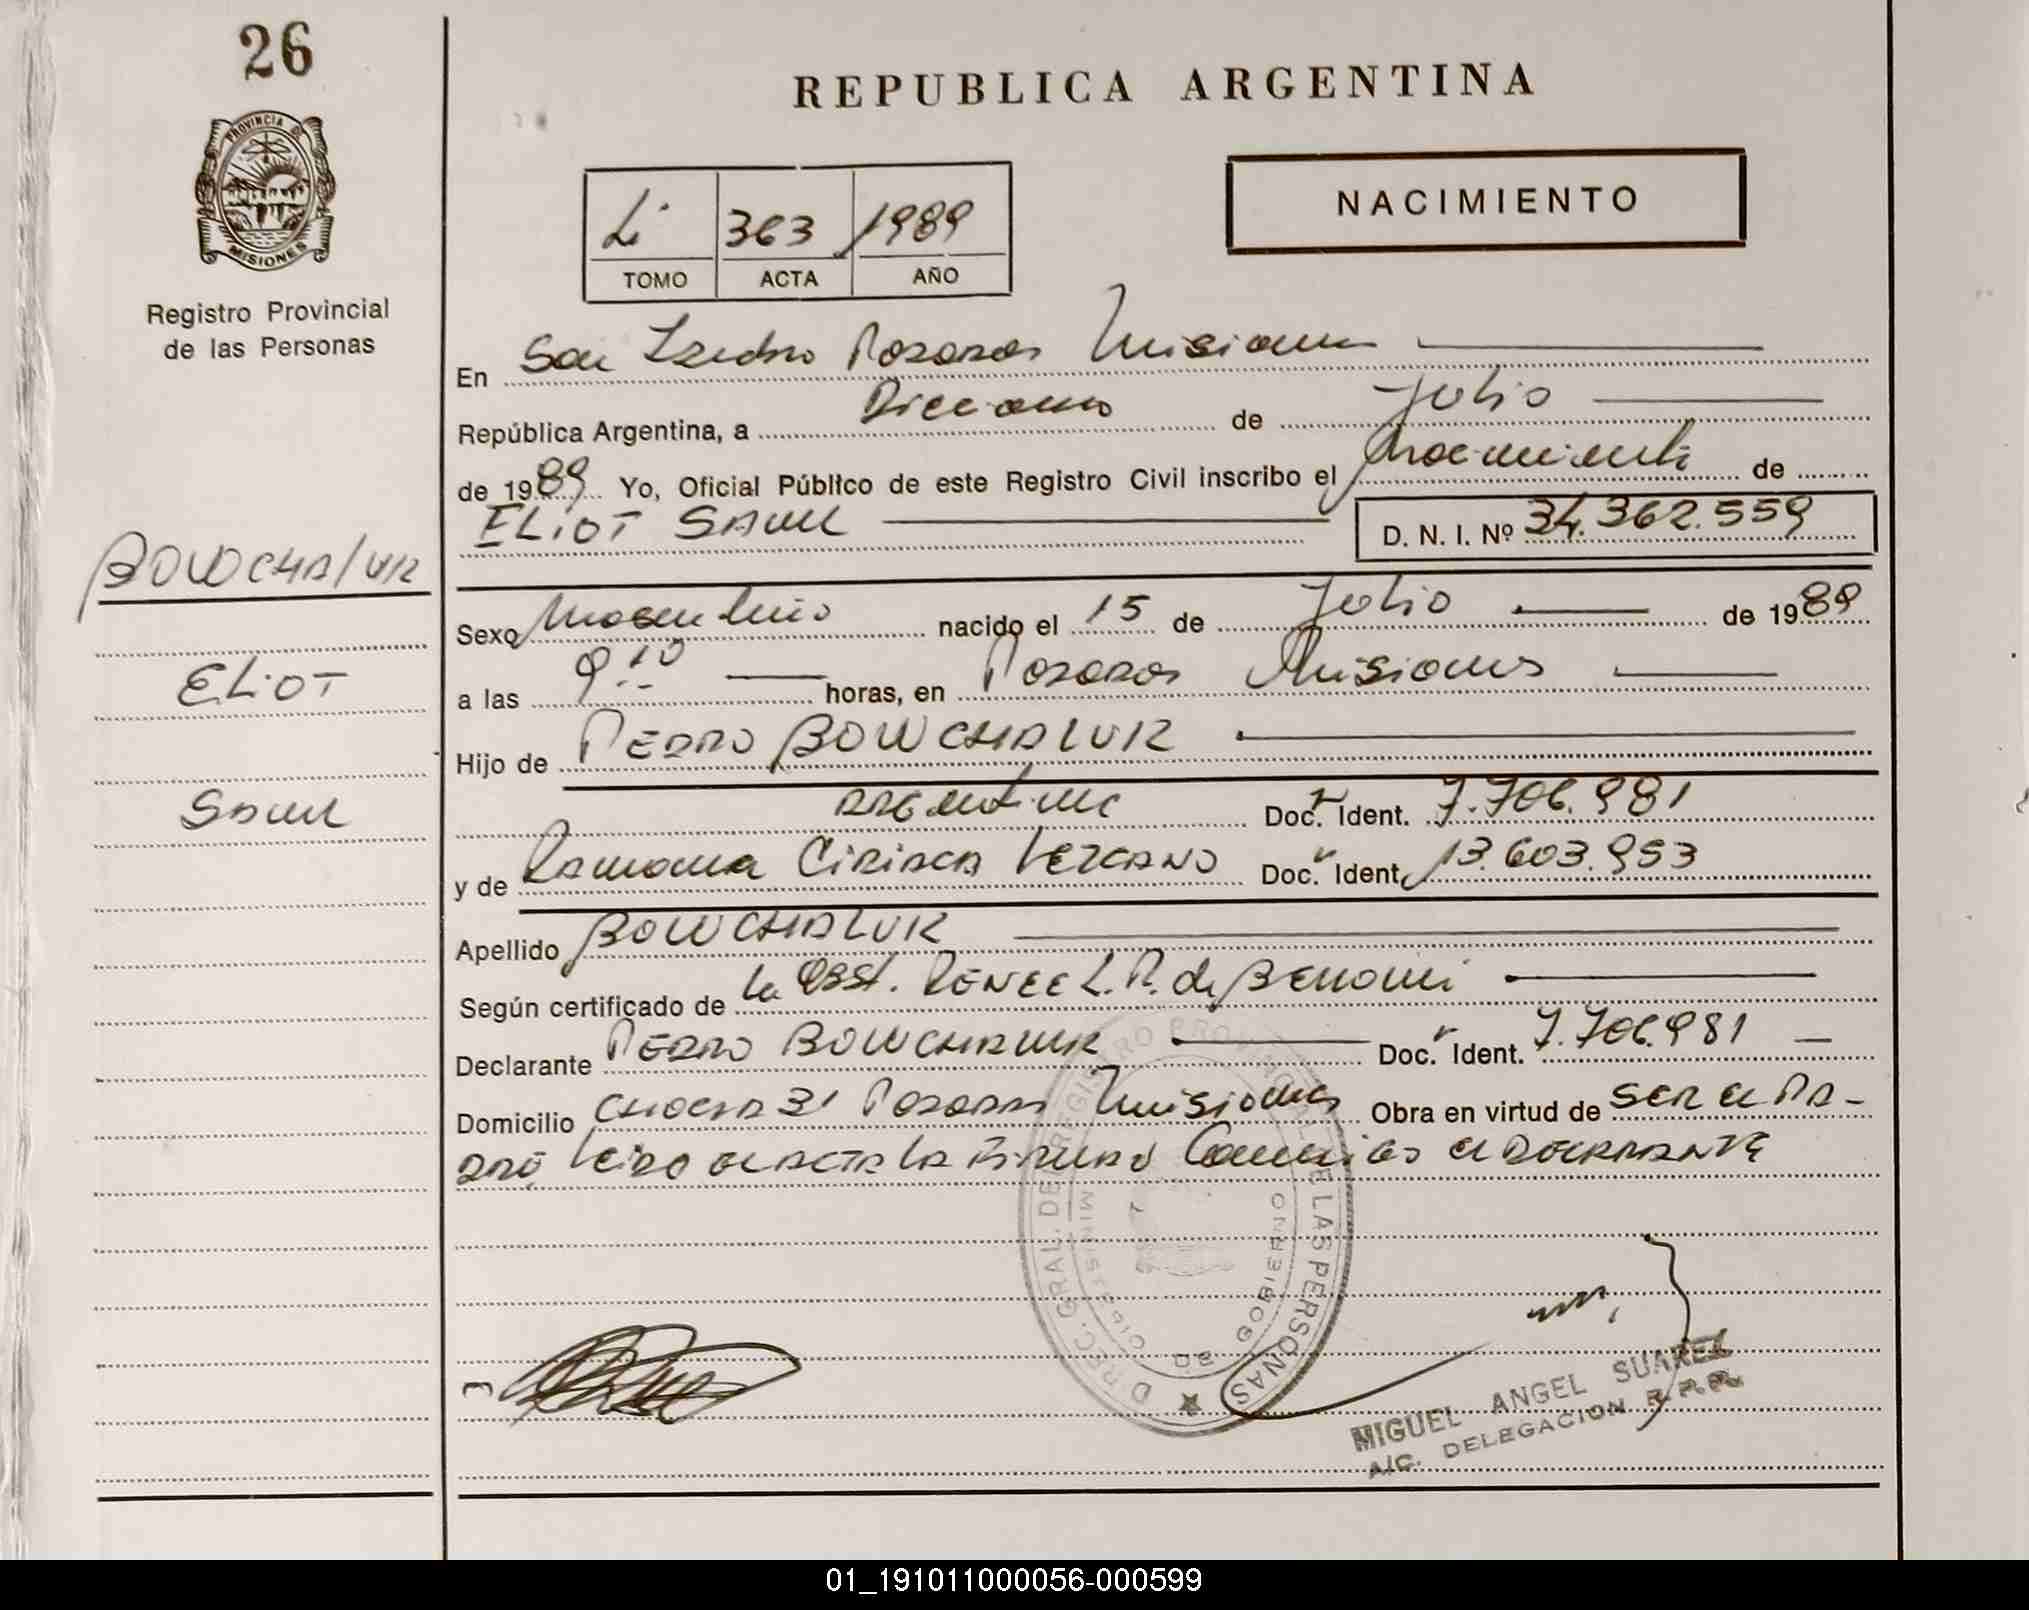 26
PROVINCIA DE
MISIONES
Registro Provincial
de las Personas
REPUBLICA ARGENTINA
NACIMIENTO
Li 363 1989
TOMO ACTA AÑO
En San Isidro Posadas Misiones
República Argentina, a Diecocho de Julio
de 1989 Yo, Oficial Público de este Registro Civil inscribo el Nacimiento de
ELIOT SAUL
D. N. I. Nº 34.362.559
BOWCHALUK
ELIOT
SAUL
Sexo Masculino nacido el 15 de Julio de 1989
a las 9.10 horas, en Posadas Misiones
Hijo de PEDRO BOWCHALUK
Argentino Doc. Ident. 7.706.981
y de Ramona CIRIACA LEZCANO Doc. Ident. 13.603.953
Apellido BOWCHALUK
Según certificado de la Obst. RENEE L. R. de
Declarante PEDRO BOWCHALUK Doc. Ident. 7.706.981
Domicilio CHACRA 31 Posadas Misiones Obra en virtud de SER el PA-
DRE, leido el ACTA la Conmigo el DECLARANTE
DIREC. GRAL. DE REGISTRO PROVINCIAL DE LAS PERSONAS
MINISTERIO DE GOBIERNO
MIGUEL ANGEL SUAREZ
A/C. DELEGACION R.P.P.
01_191011000056-000599